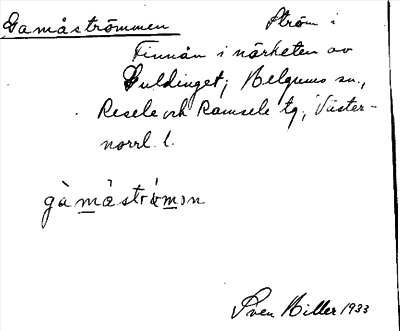 Gamåströmmen Ström i
Finnån i närheten av
Guldinget; Helgums sn.,
Resele och Ramsele tg, Väster-
norrl. l.
gàmåström
Sven Hiller 1933